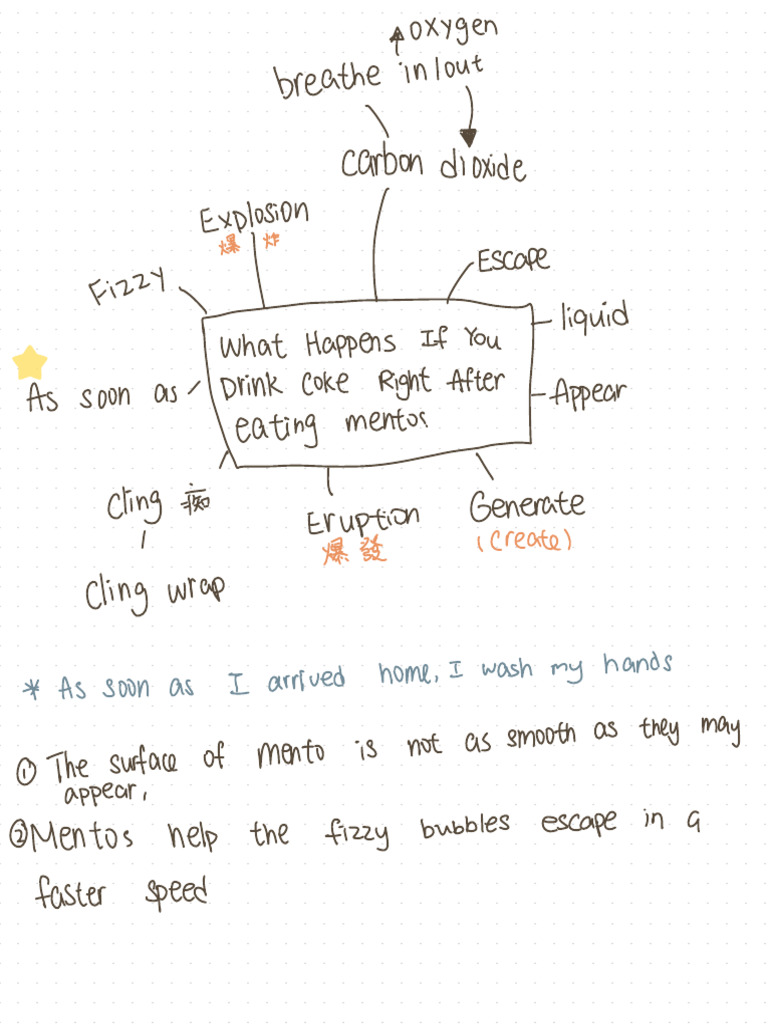 oxygen
breathe in/out
carbon dioxide
Explosion
爆炸
Escape
Fizzy
liquid
What Happens If You
Drink Coke Right After
eating mentos
As soon as
Appear
Cling
Eruption
爆發
Generate
(create)
Cling wrap
* As soon as I arrived home, I wash my hands
① The surface of mento is not as smooth as they may
appear,
② Mentos help the fizzy bubbles escape in a
faster speed